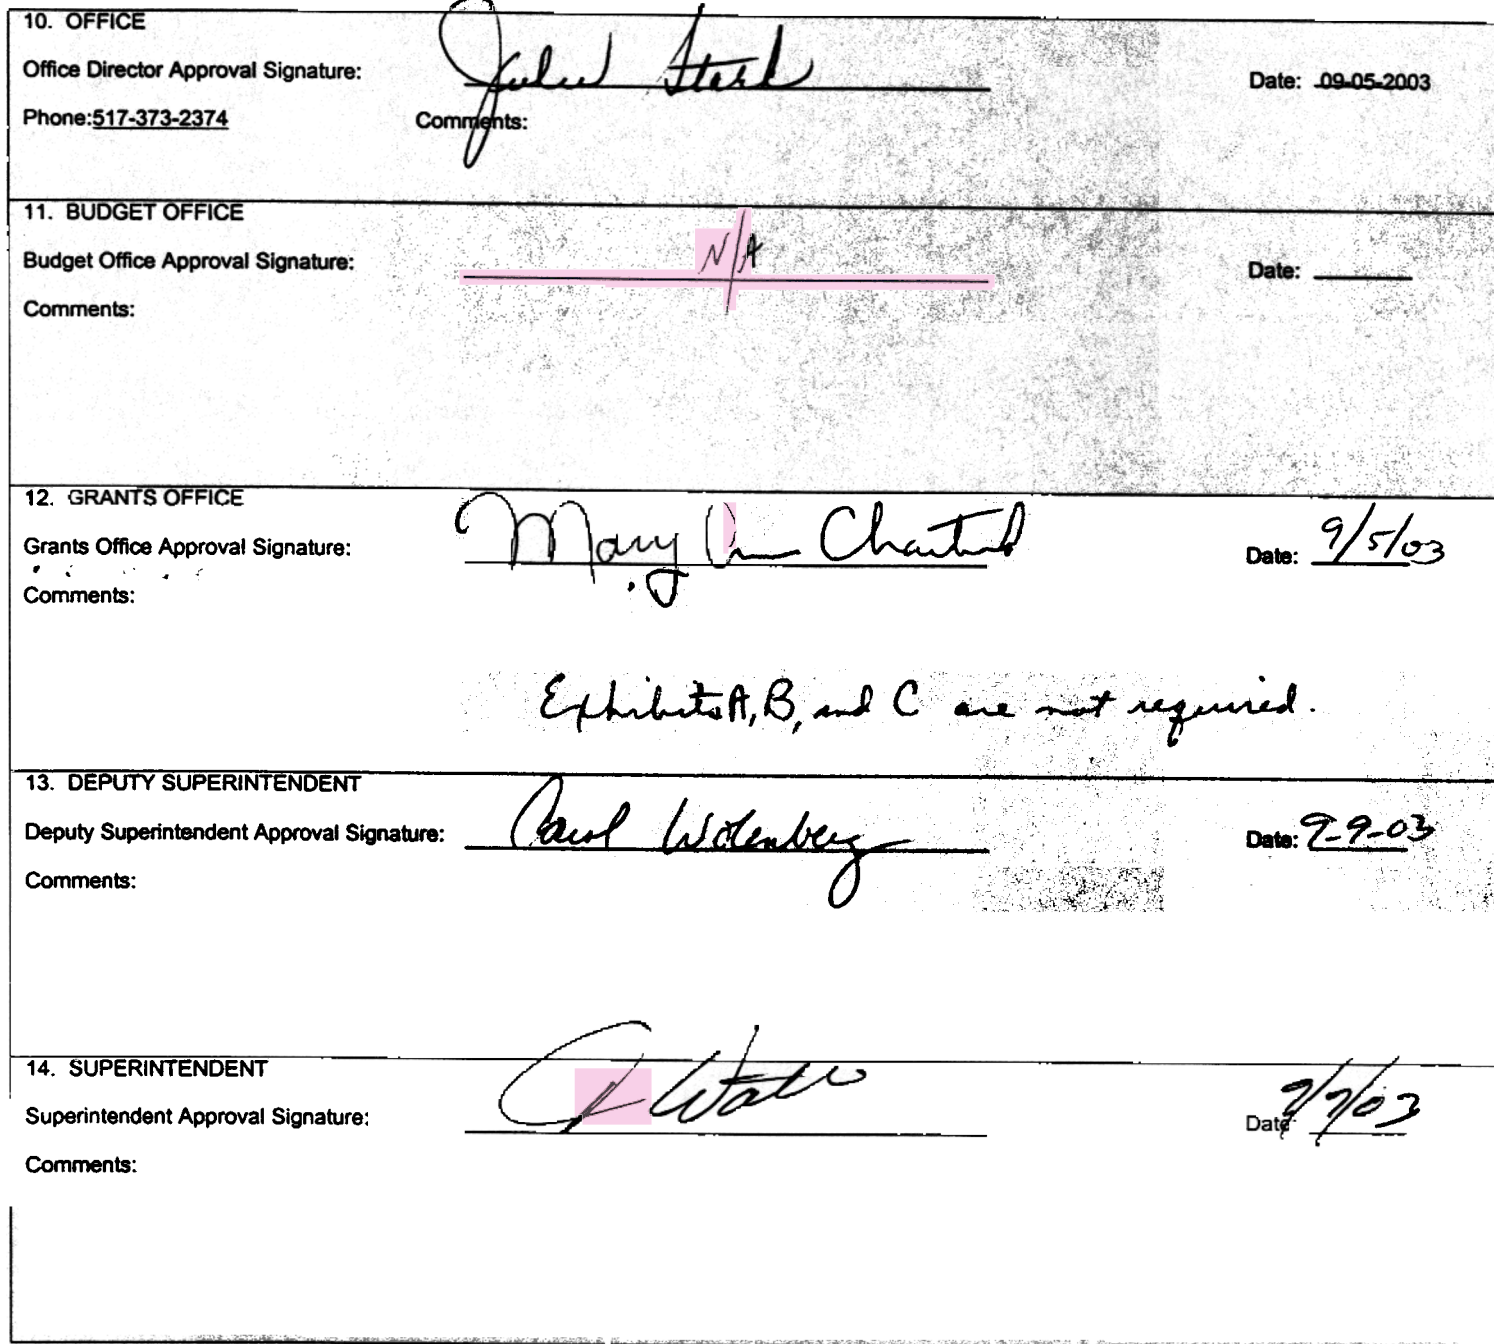 10. OFFICE
Office Director Approval Signature: Julie Stark Date: 09-05-2003
Phone:517-373-2374 Comments:
11. BUDGET OFFICE
Budget Office Approval Signature: N/A Date:
Comments:
12. GRANTS OFFICE
Grants Office Approval Signature: Mary Ann Chartrand Date: 9/5/03
Comments:
Exhibits A, B, and C are not required.
13. DEPUTY SUPERINTENDENT
Deputy Superintendent Approval Signature: Carol Wolenberg Date: 9-9-03
Comments:
14. SUPERINTENDENT
Superintendent Approval Signature: Date 9/9/03
Comments: